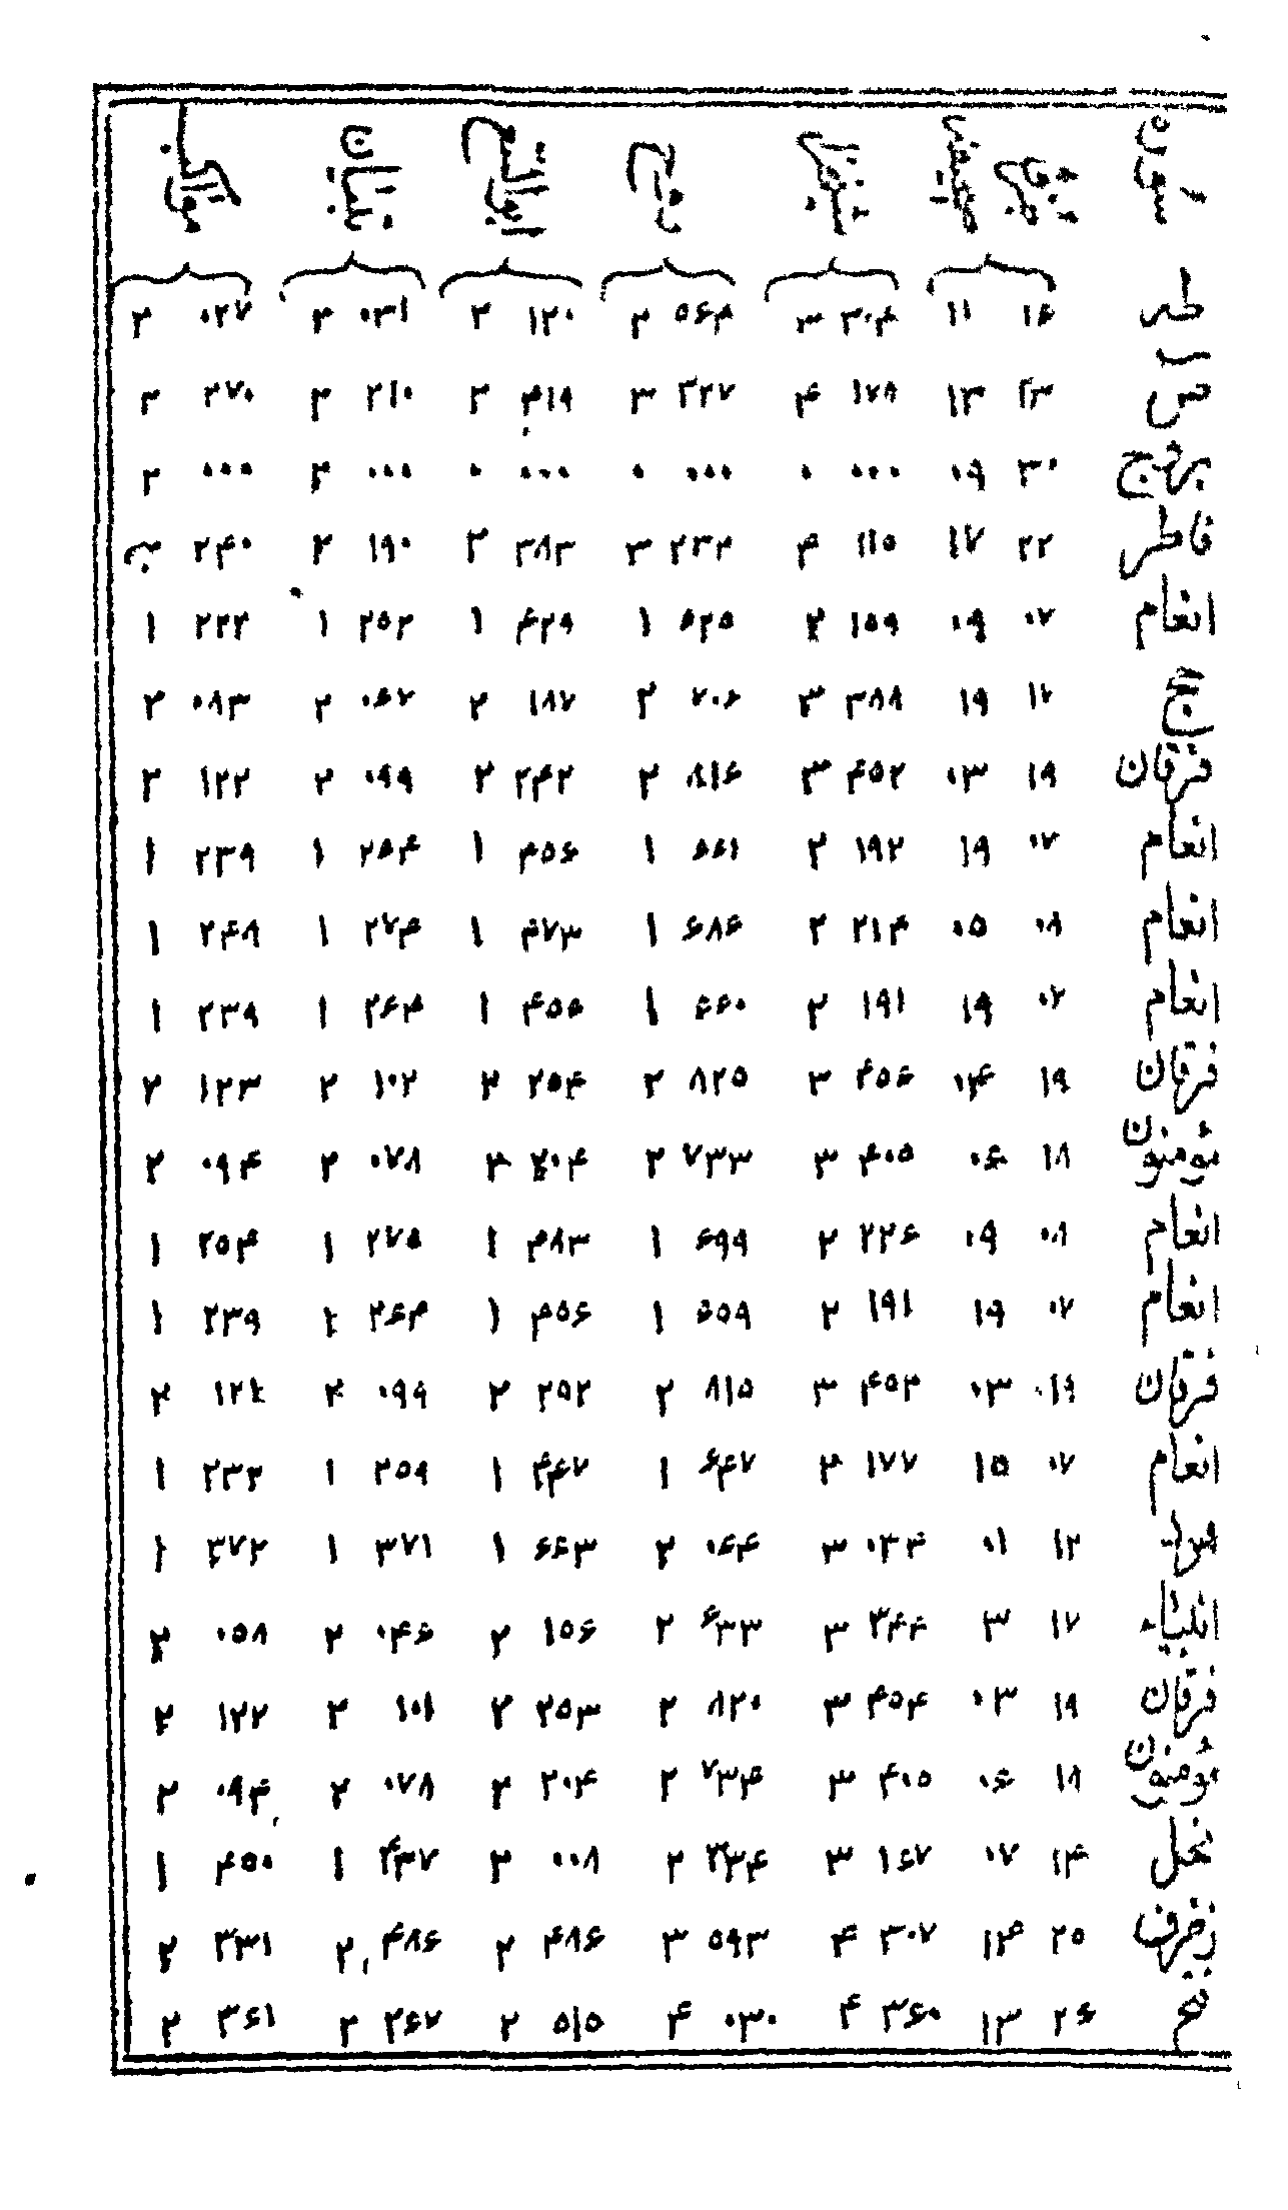 طه ۱۶ ۱۱ ۳۰۴ ۳ ۵۶۴ ۲ ۱۲۰ ۲ ۰۳۱ ۲ ۰۲۷ ۲
ص ۲۳ ۱۳ ۱۷۸ ۴ ۳۲۷ ۳ ۴۱۹ ۲ ۲۱۰ ۲ ۲۷۰ ۲
بروج ۳۰ ۰۹ ۰۰۰ ۰ ۰۰۰ ۰ ۰۰۰ ۰ ۰۰۰ ۲ ۰۰۰ ۲
فاطر ۲۲ ۱۷ ۱۱۵ ۴ ۲۳۴ ۳ ۳۸۳ ۲ ۱۹۰ ۲ ۲۴۰
انعام ۰۷ ۰۹ ۱۵۹ ۲ ۶۲۵ ۱ ۴۲۹ ۱ ۲۵۲ ۱ ۲۲۲ ۱
حج ۱۷ ۱۹ ۳۸۸ ۳ ۷۰۶ ۲ ۱۸۷ ۲ ۰۶۷ ۲ ۰۸۳ ۲
فرقان ۱۹ ۰۳ ۴۵۲ ۳ ۸۱۶ ۲ ۲۴۲ ۲ ۰۹۹ ۲ ۱۲۲ ۲
انعام ۰۷ ۱۹ ۱۹۲ ۲ ۶۶۱ ۱ ۴۵۶ ۱ ۲۵۴ ۱ ۲۳۹ ۱
انعام ۰۸ ۰۵ ۲۱۴ ۲ ۶۸۶ ۱ ۴۷۳ ۱ ۲۷۴ ۱ ۲۴۸ ۱
انعام ۰۷ ۱۹ ۱۹۱ ۲ ۶۶۰ ۱ ۴۵۶ ۱ ۲۶۴ ۱ ۲۳۹ ۱
فرقان ۱۹ ۰۴ ۴۵۶ ۳ ۸۲۵ ۲ ۲۵۴ ۲ ۱۰۲ ۲ ۱۲۳ ۲
مؤمنون ۱۸ ۰۶ ۴۰۵ ۳ ۷۳۳ ۲ ۲۰۴ ۲ ۰۷۸ ۲ ۰۹۴ ۲
انعام ۰۸ ۰۹ ۲۲۶ ۲ ۶۹۹ ۱ ۴۸۳ ۱ ۲۷۵ ۱ ۲۵۴ ۱
انعام ۰۷ ۱۹ ۱۹۱ ۲ ۶۵۹ ۱ ۴۵۶ ۱ ۲۶۴ ۱ ۲۳۹ ۱
فرقان ۱۹ ۰۳ ۴۵۳ ۳ ۸۱۵ ۲ ۲۵۲ ۲ ۰۹۹ ۲ ۱۲۲ ۲
انعام ۰۷ ۱۵ ۱۷۷ ۲ ۶۴۷ ۱ ۴۴۷ ۱ ۲۵۹ ۱ ۲۳۲ ۱
۱۲ ۰۱ ۰۳۴ ۳ ۰۶۴ ۲ ۶۶۳ ۱ ۳۷۱ ۱ ۳۷۲ ۱
انبیاء ۱۷ ۳ ۳۴۴ ۳ ۶۳۳ ۲ ۱۵۶ ۲ ۰۴۶ ۲ ۰۵۸ ۲
فرقان ۱۹ ۰۳ ۴۵۴ ۳ ۸۲۰ ۲ ۲۵۳ ۲ ۱۰۱ ۲ ۱۲۲ ۲
مؤمنون ۱۸ ۰۶ ۴۰۵ ۳ ۷۳۴ ۲ ۲۰۴ ۲ ۰۷۸ ۲ ۰۹۴ ۲
نحل ۱۴ ۰۷ ۱۶۷ ۳ ۳۳۴ ۲ ۰۰۸ ۲ ۴۳۷ ۱ ۴۵۰ ۱
زخرف ۲۵ ۱۴ ۳۰۷ ۴ ۵۹۳ ۳ ۴۸۶ ۲ ۴۸۶ ۲ ۳۳۱ ۲
فتح ۲۶ ۱۳ ۳۶۰ ۴ ۰۳۰ ۴ ۵۱۵ ۲ ۲۶۷ ۲ ۳۶۱ ۲